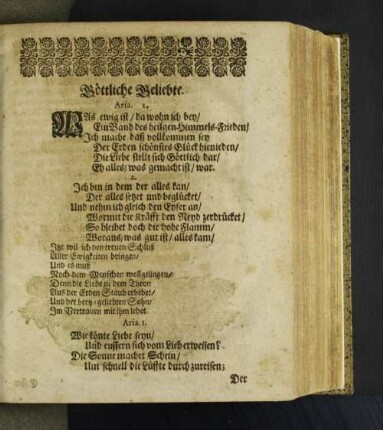 Göttliche Geliebte.
Aria. 1.
WAs ewig ist / da wohn ich bey /
Ein Band des heilgen-Himmels-Frieden /
Ich mache daß vollkommen sey
Der Erden schönstes Glück hienieden /
Die Liebe stellt sich Göttlich dar /
Eh alles / was gemacht ist / war.
2.
Ich bin in dem der alles kan /
Der alles setzet und beglücket /
Und nehm ich gleich den Eyfer an /
Wormit die Kräfft den Neyd zerdrücket /
So bleibet doch die hohe Flamm /
Woraus / was gut ist / alles kam /
Itzt wil ich den treuen Schluß
Aller Ewigkeiten bringen /
Und es muß
Nach dem Wunsche wolgelingen /
Denn die Liebe zu dem Thron
Aus der Erden Staub erhebet /
Und der hertz-geliebten Sohn /
Im Vertrauen mit ihm lebet.
Aria. 1.
Wie könte Liebe seyn /
Und eussern sich vom Lieb erweisen?
Die Sonne machet Schein /
Um schnell die Lüffte durchzureisen;
Der